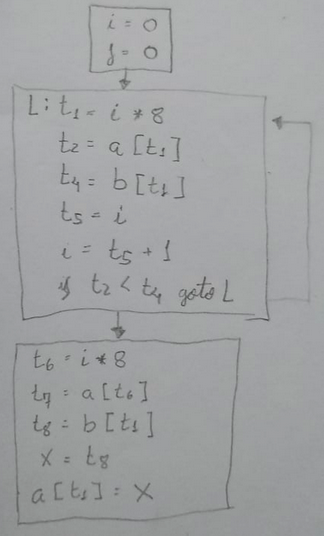 i = 0
j = 0
L: t1 = i * 8
t2 = a [t1]
t4 = b [t1]
t5 = i
i = t5 + 1
if t2 < t4 goto L
t6 = i * 8
t7 = a [t6]
t8 = b [t1]
x = t8
a [t1] = x